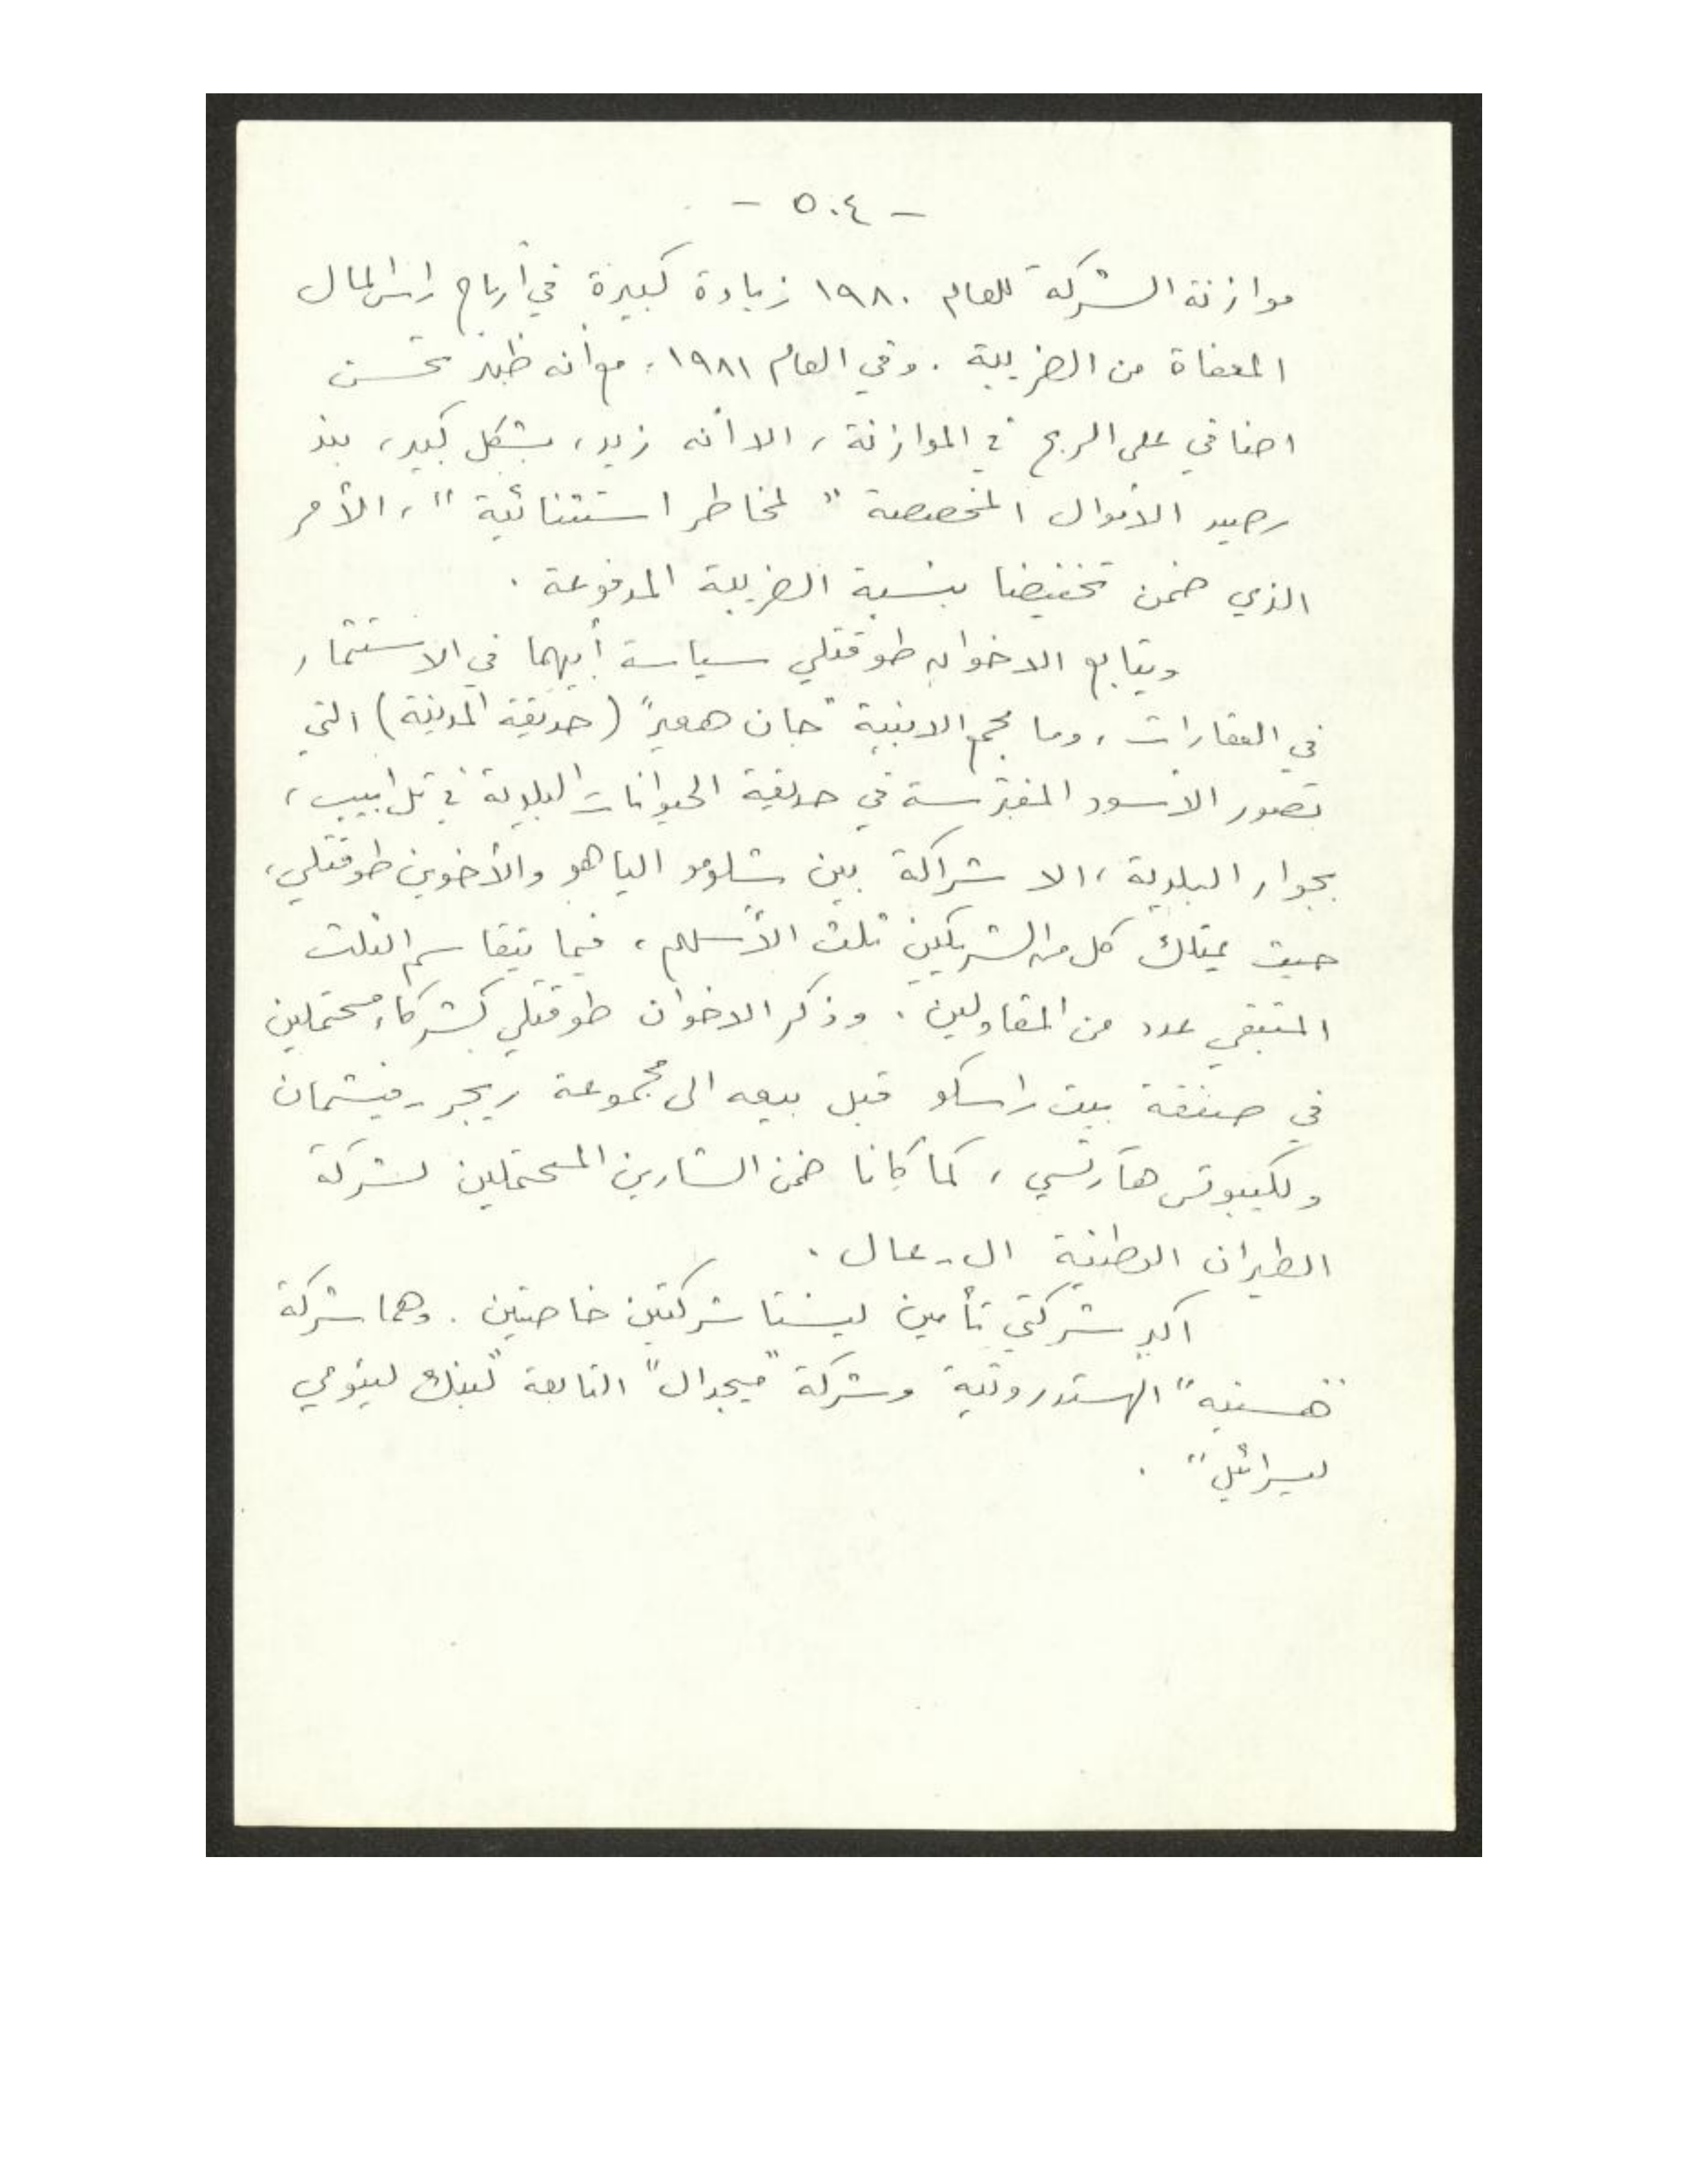 - ٥٠٤ -
موازنة الشركة للعام ١٩٨٠ زيادة كبيرة في أرباح راس المال
المعفاة من الضريبة . وفي العام ١٩٨١، مع أنه ظهر تحسن
اضافي على الربح في الموازنة ، الا أنه زيد ، بشكل كبير ، بند
رصيد الأموال المخصصة " لمخاطر استثنائية " ، الأمر
الذي ضمن تخفيضا بنسبة الضريبة المدفوعة .
ويتابع الاخوان طوقتلي سياسة أبيهما في الاستثمار
في العقارات ، وما مجمع الابنية "جان هعير" (حديقة المدينة) التي
تصور الأسود المفترسة في حديقة الحيوانات البلدية في تل ابيب ،
بجوار البلدية ، الا شراكة بين شلومو الياهو والأخوين طوقتلي ،
حيث يمتلك كل من الشريكين ثلث الأسهم ، فيما يتقاسم الثلث
المتبقي عدد من المقاولين . وذكر الاخوان طوقتلي كشركاء محتملين
في صفقة بيت راسكو قبل بيعه الى مجموعة ريجر - فيشمان
ولكيبوتس هآرتسي ، كما كانا ضمن الشارين المحتملين لشركة
الطيران الوطنية ال - عال .
اكبر شركتي تأمين ليستا شركتين خاصتين . وهما شركة
"هسنيه" الهستدروتية وشركة "ميجدال" التابعة "لبنك ليئومي
ليسرائيل" .